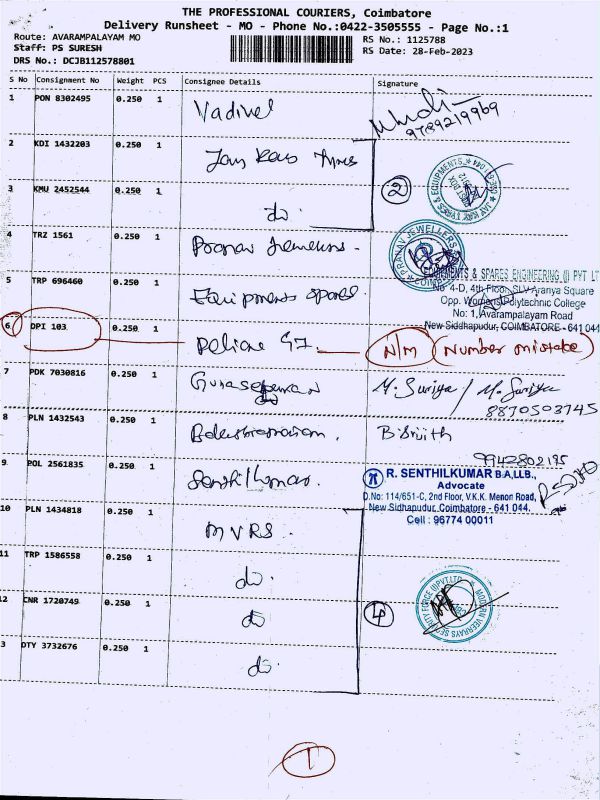 THE PROFESSIONAL COURIERS, Coimbatore
Delivery Runsheet - MO - Phone No.:0422-3505555 - Page No.:1
Route: AVARAMPALAYAM MO
RS No.: 1125788
Staff: PS SURESH
RS Date: 28-Feb-2023
DRS No.: DCJB112578801
S No Consignment No Weight PCS Consignee Details Signature
1 PON 8302495 0.250 1 Vadivel
9789219969
2 KDI 1432203 0.250 1 Jay Kay Tyres
2
JAY KAY TYRES & EQUIPMENTS
3 KMU 2452544 0.250 1 do
4 TRZ 1561 0.250 1
PRANAV JEWELLERS
5 TRP 696460 0.250 1 Equipments spares
EQUIPMENTS & SPARES ENGINEERING (I) PVT LT
No 4-D, 4th Floor, SLV Aranya Square
Opp. Womens Polytechnic College
No: 1, Avarampalayam Road
New Siddhapudur, COIMBATORE - 641 044
6 DPI 103 0.250 1 N/M (Number mistake)
7 PDK 7030816 0.250 1 Gunasekaran M. Suriya / M. Suriya
8870503745
8 PLN 1432543 0.250 1 Balasubramaniam.
9942802195
9 POL 2561835 0.250 1 Senthilkumar.
R. SENTHILKUMAR B.A,LLB.,
Advocate
D.No: 114/651-C, 2nd Floor, V.K.K. Menon Road,
New Sidhapudur, Coimbatore - 641 044.
Cell : 96774 00011
10 PLN 1434818 0.250 1 MVRS.
11 TRP 1586558 0.250 1 do.
12 CNR 1720749 0.250 1 do
4
MODERN VEERAYS SECURITY FORCE (I) PVT.LTD
3 DTY 3732676 0.250 1 do.
1